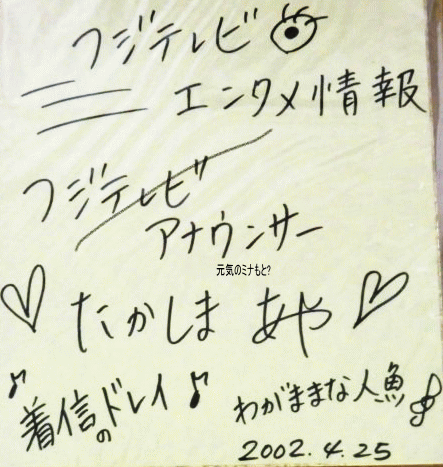 フジテレビ
エンタメ情報
フジテレビ
アナウンサー
元気のミナもと?
♡ たかしま あや ♡
♪ 着信のドレイ ♪
わがままな人魚
2002.4.25